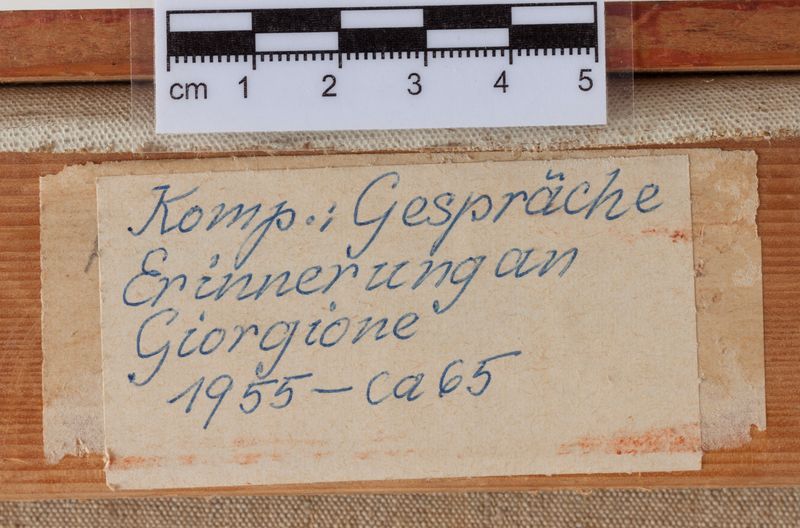 cm 1 2 3 4 5
Komp.: Gespräche
Erinnerung an
Giorgione
1955 – ca 65